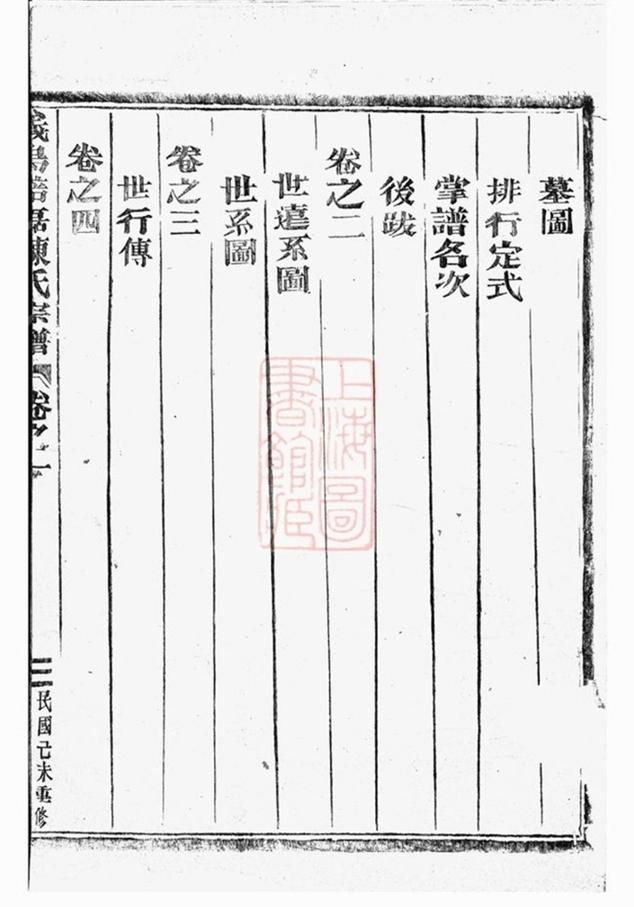 墓圖
排行定式
掌譜名次
後跋
卷之二
世遠系圖
世系圖
卷之三
世行傳
卷之四
陳氏宗譜 卷之一
民國己未重修
上海圖書館臧